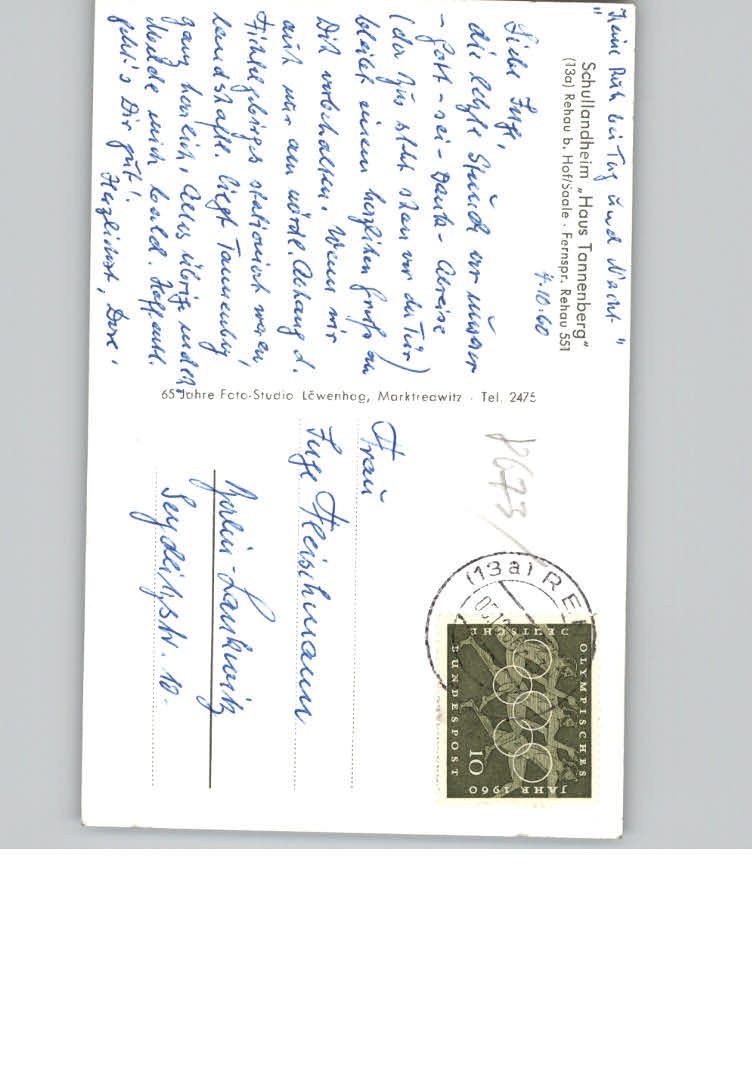 "Keine Ruh bei Tag und Nacht"
Schullandheim „Haus Tannenberg"
(13a) Rehau b. Hof/Saale · Fernspr. Rehau 551
4.10.60
Liebe Inge,
die letzte Stunde vor unsrer
- Gott-sei-Dank- Abreise
(der Bus steht schon vor der Tür)
bleibt einem herzlichen Gruß an
Dich vorbehalten. Wenn wir
auch nur am nördl. Abhang d.
Fichtelgebirges stationiert waren,
landschaftl. liegt Tannenberg
ganz herrlich, alles übrige
Melde mich bald. Hoffentl.
geht's Dir gut!
Herzlichst, Dore.
65 Jahre Foto-Studio Löwenhag, Marktredwitz · Tel. 2475
Frau
Inge Fleischmann
Berlin-Lankwitz
Seydlitzstr. 10.
8673
(13a) RE
DEUTSCHE
BUNDESPOST
OLYMPISCHES
JAHR 1960
10